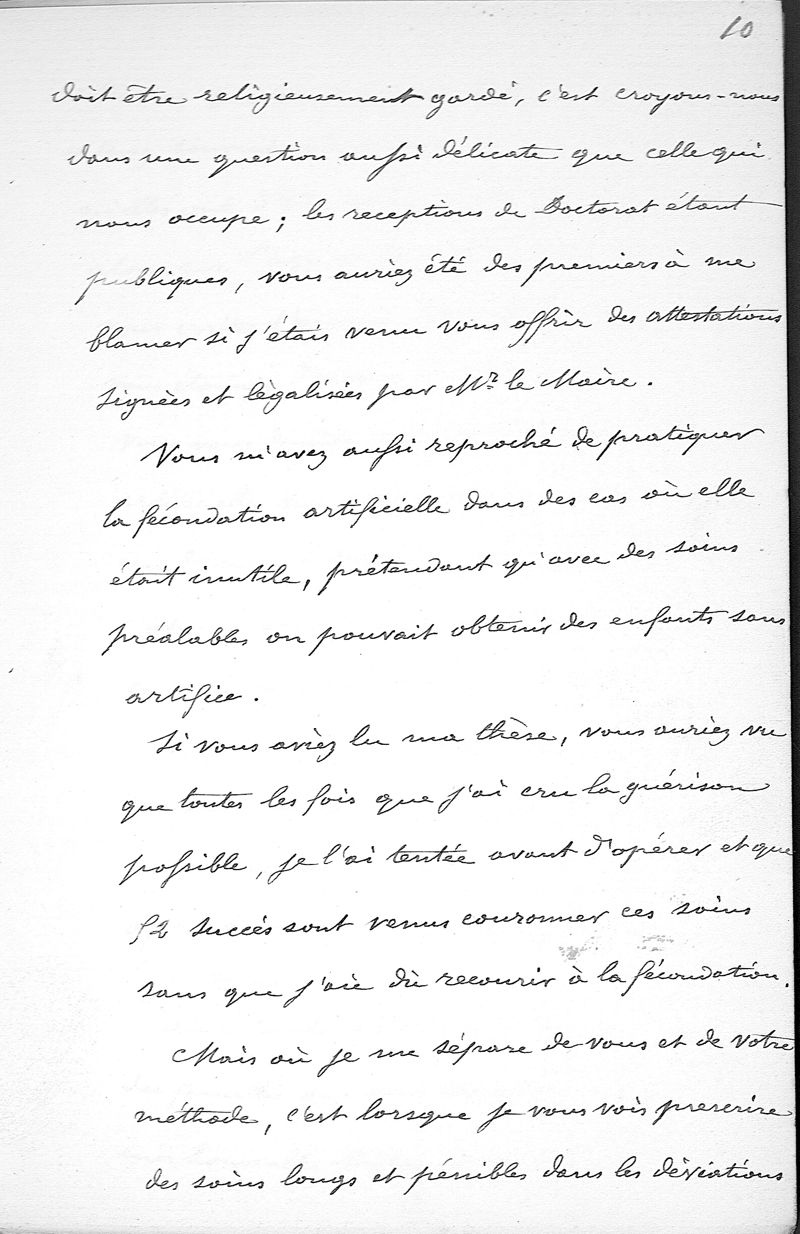 10
doit être religieusement gardé, c'est croyons-nous
dans une question aussi délicate que celle qui
nous occupe ; les receptions de Doctorat étant
publiques, vous auriez été des premiers à me
blamer si j'étais venu vous offrir des attestations
signées et légalisées par Mr. le Maire.
Vous m'avez aussi reproché de pratiquer
la fécondation artificielle dans des cas où elle
était inutile, prétendant qu'avec des soins
préalables on pouvait obtenir des enfants sans
artifice.
Si vous aviez lu ma thèse, vous auriez vu
que toutes les fois que j'ai cru la guérison
possible, je l'ai tentée avant d'opérer et que
52 succés sont venus couronner ces soins
sans que j'aie dû recourir à la fécondation.
Mais où je me sépare de vous et de votre
méthode, c'est lorsque je vous vois prescrire
des soins longs et pénibles dans les déviations